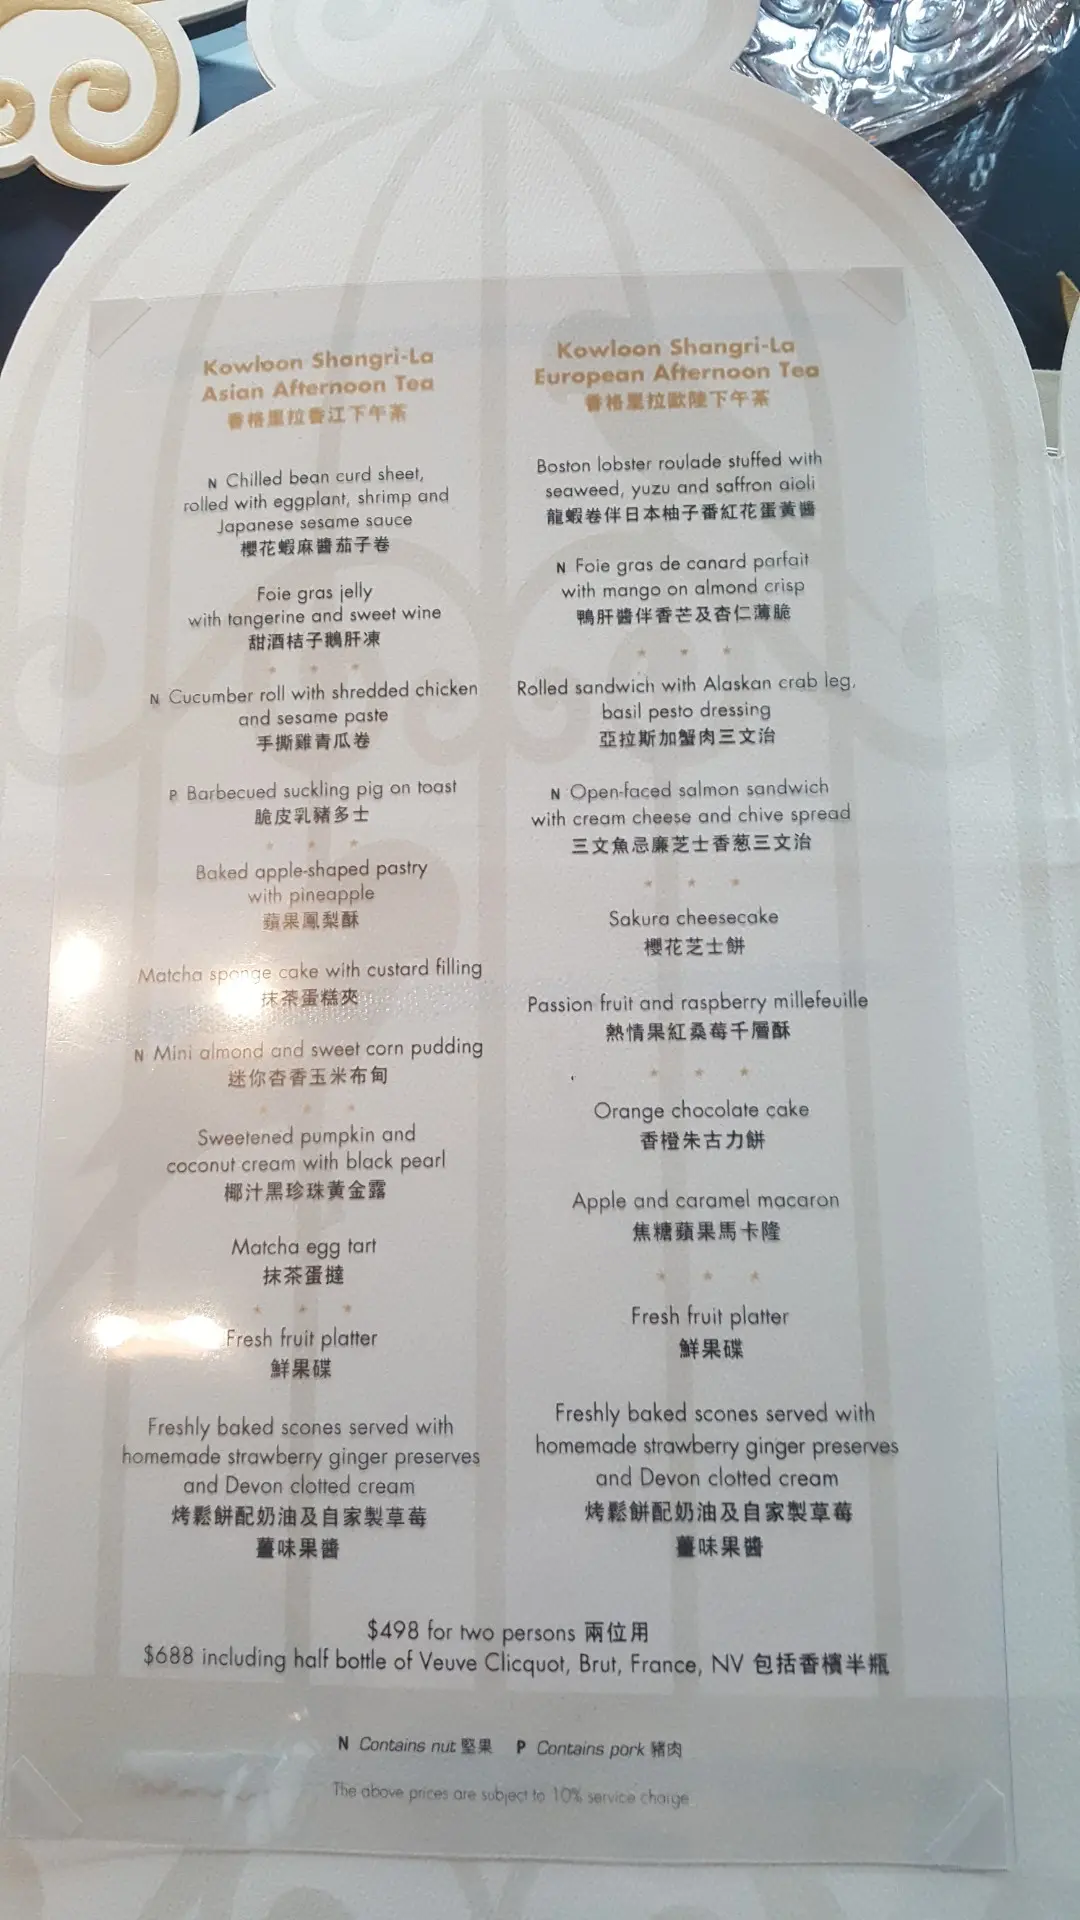 Kowloon Shangri-La
Asian Afternoon Tea
香格里拉香江下午茶
N Chilled bean curd sheet,
rolled with eggplant, shrimp and
Japanese sesame sauce
櫻花蝦麻醬茄子卷
Foie gras jelly
with tangerine and sweet wine
甜酒桔子鵝肝凍
* * *
N Cucumber roll with shredded chicken
and sesame paste
手撕雞青瓜卷
P Barbecued suckling pig on toast
脆皮乳豬多士
* * *
Baked apple-shaped pastry
with pineapple
蘋果鳳梨酥
Matcha sponge cake with custard filling
抹茶蛋糕夾
N Mini almond and sweet corn pudding
迷你杏香玉米布甸
* * *
Sweetened pumpkin and
coconut cream with black pearl
椰汁黑珍珠黃金露
Matcha egg tart
抹茶蛋撻
* * *
Fresh fruit platter
鮮果碟
Freshly baked scones served with
homemade strawberry ginger preserves
and Devon clotted cream
烤鬆餅配奶油及自家製草莓
薑味果醬
Kowloon Shangri-La
European Afternoon Tea
香格里拉歐陸下午茶
Boston lobster roulade stuffed with
seaweed, yuzu and saffron aioli
龍蝦卷伴日本柚子番紅花蛋黃醬
N Foie gras de canard parfait
with mango on almond crisp
鴨肝醬伴香芒及杏仁薄脆
* * *
Rolled sandwich with Alaskan crab leg,
basil pesto dressing
亞拉斯加蟹肉三文治
N Open-faced salmon sandwich
with cream cheese and chive spread
三文魚忌廉芝士香葱三文治
* * *
Sakura cheesecake
櫻花芝士餅
Passion fruit and raspberry millefeuille
熱情果紅桑莓千層酥
* * *
Orange chocolate cake
香橙朱古力餅
Apple and caramel macaron
焦糖蘋果馬卡隆
* * *
Fresh fruit platter
鮮果碟
Freshly baked scones served with
homemade strawberry ginger preserves
and Devon clotted cream
烤鬆餅配奶油及自家製草莓
薑味果醬
$498 for two persons 兩位用
$688 including half bottle of Veuve Clicquot, Brut, France, NV 包括香檳半瓶
N Contains nut 堅果 P Contains pork 豬肉
The above prices are subject to 10% service charge